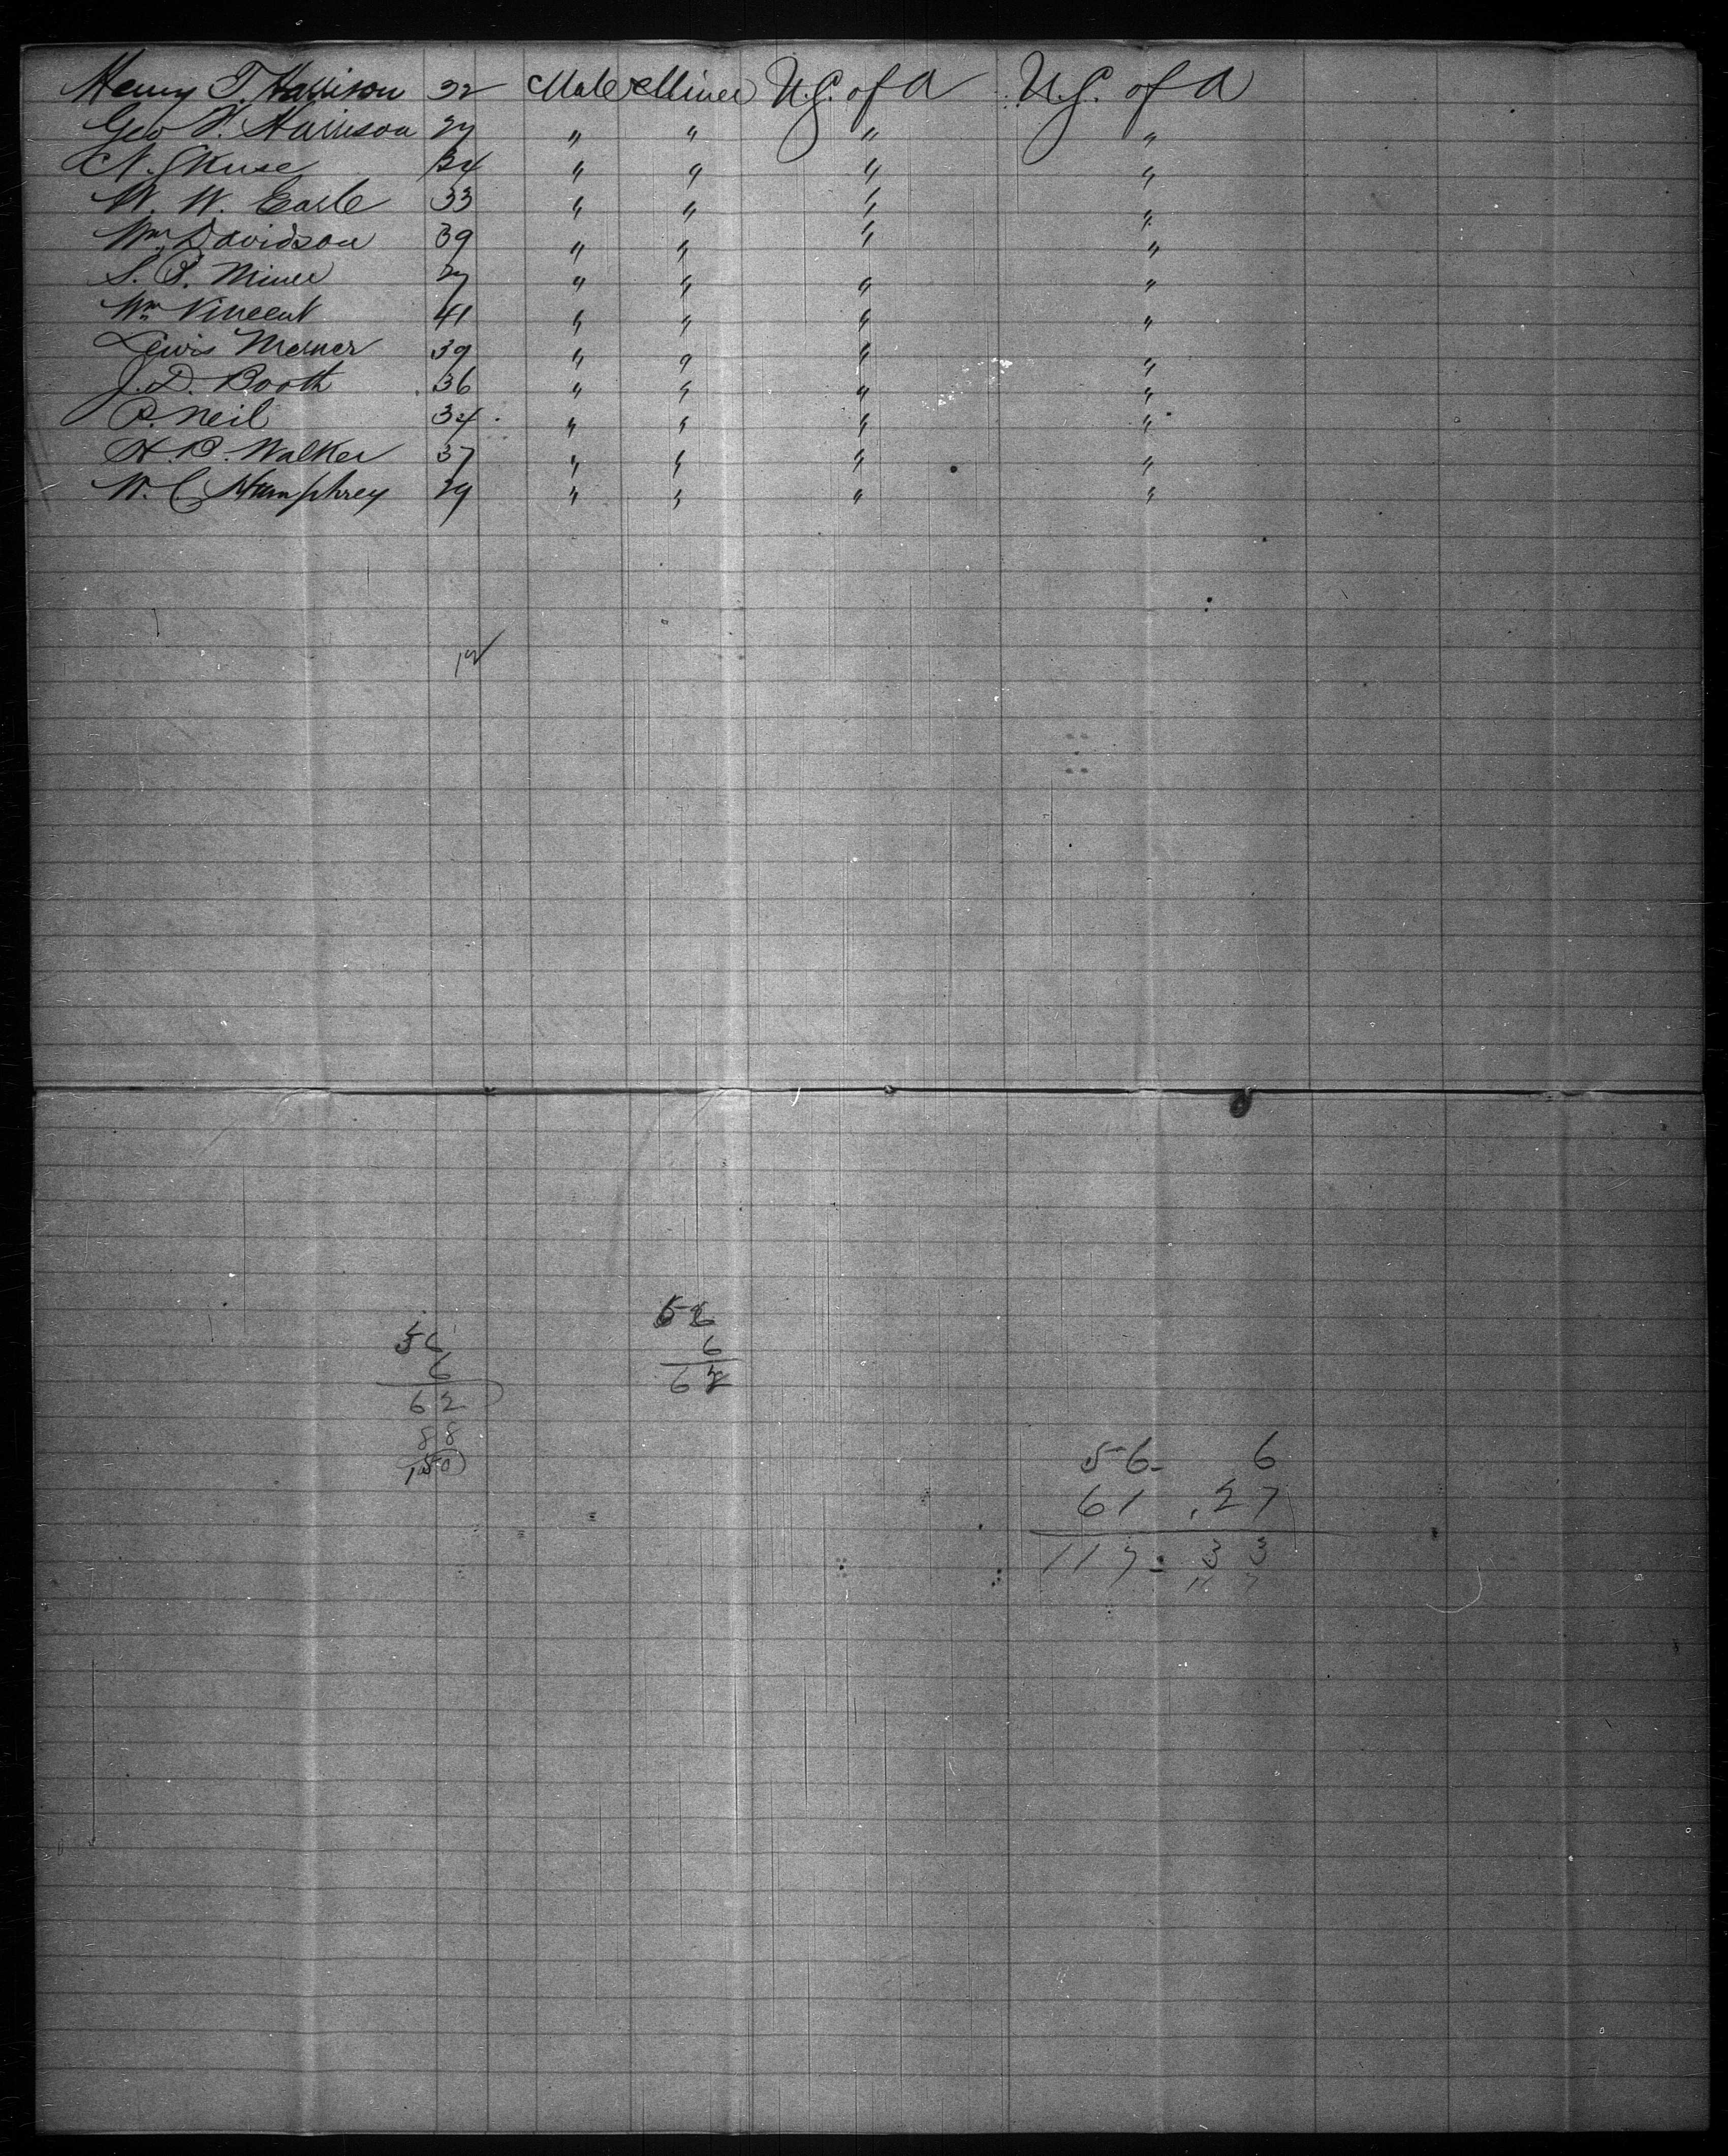 Henry T. Harrison 32 Male Miner U.S. of A U.S. of A
Geo F. Harrison 27 " " " "
N. Skuse 34 " " " "
W. W. Earle 33 " " " "
Wm Davidson 39 " " " "
S. P. Miner 27 " " " "
Wm Vincent 41 " " " "
Lewis Merner 39 " " " "
J. D. Booth 36 " " " "
P. Neil 34 " " " "
H. P. Walker 37 " " " "
W. C Humphrey 29 " " " "
12
56
6
62
88
150
56
6
62
56 6
61 27
117 33